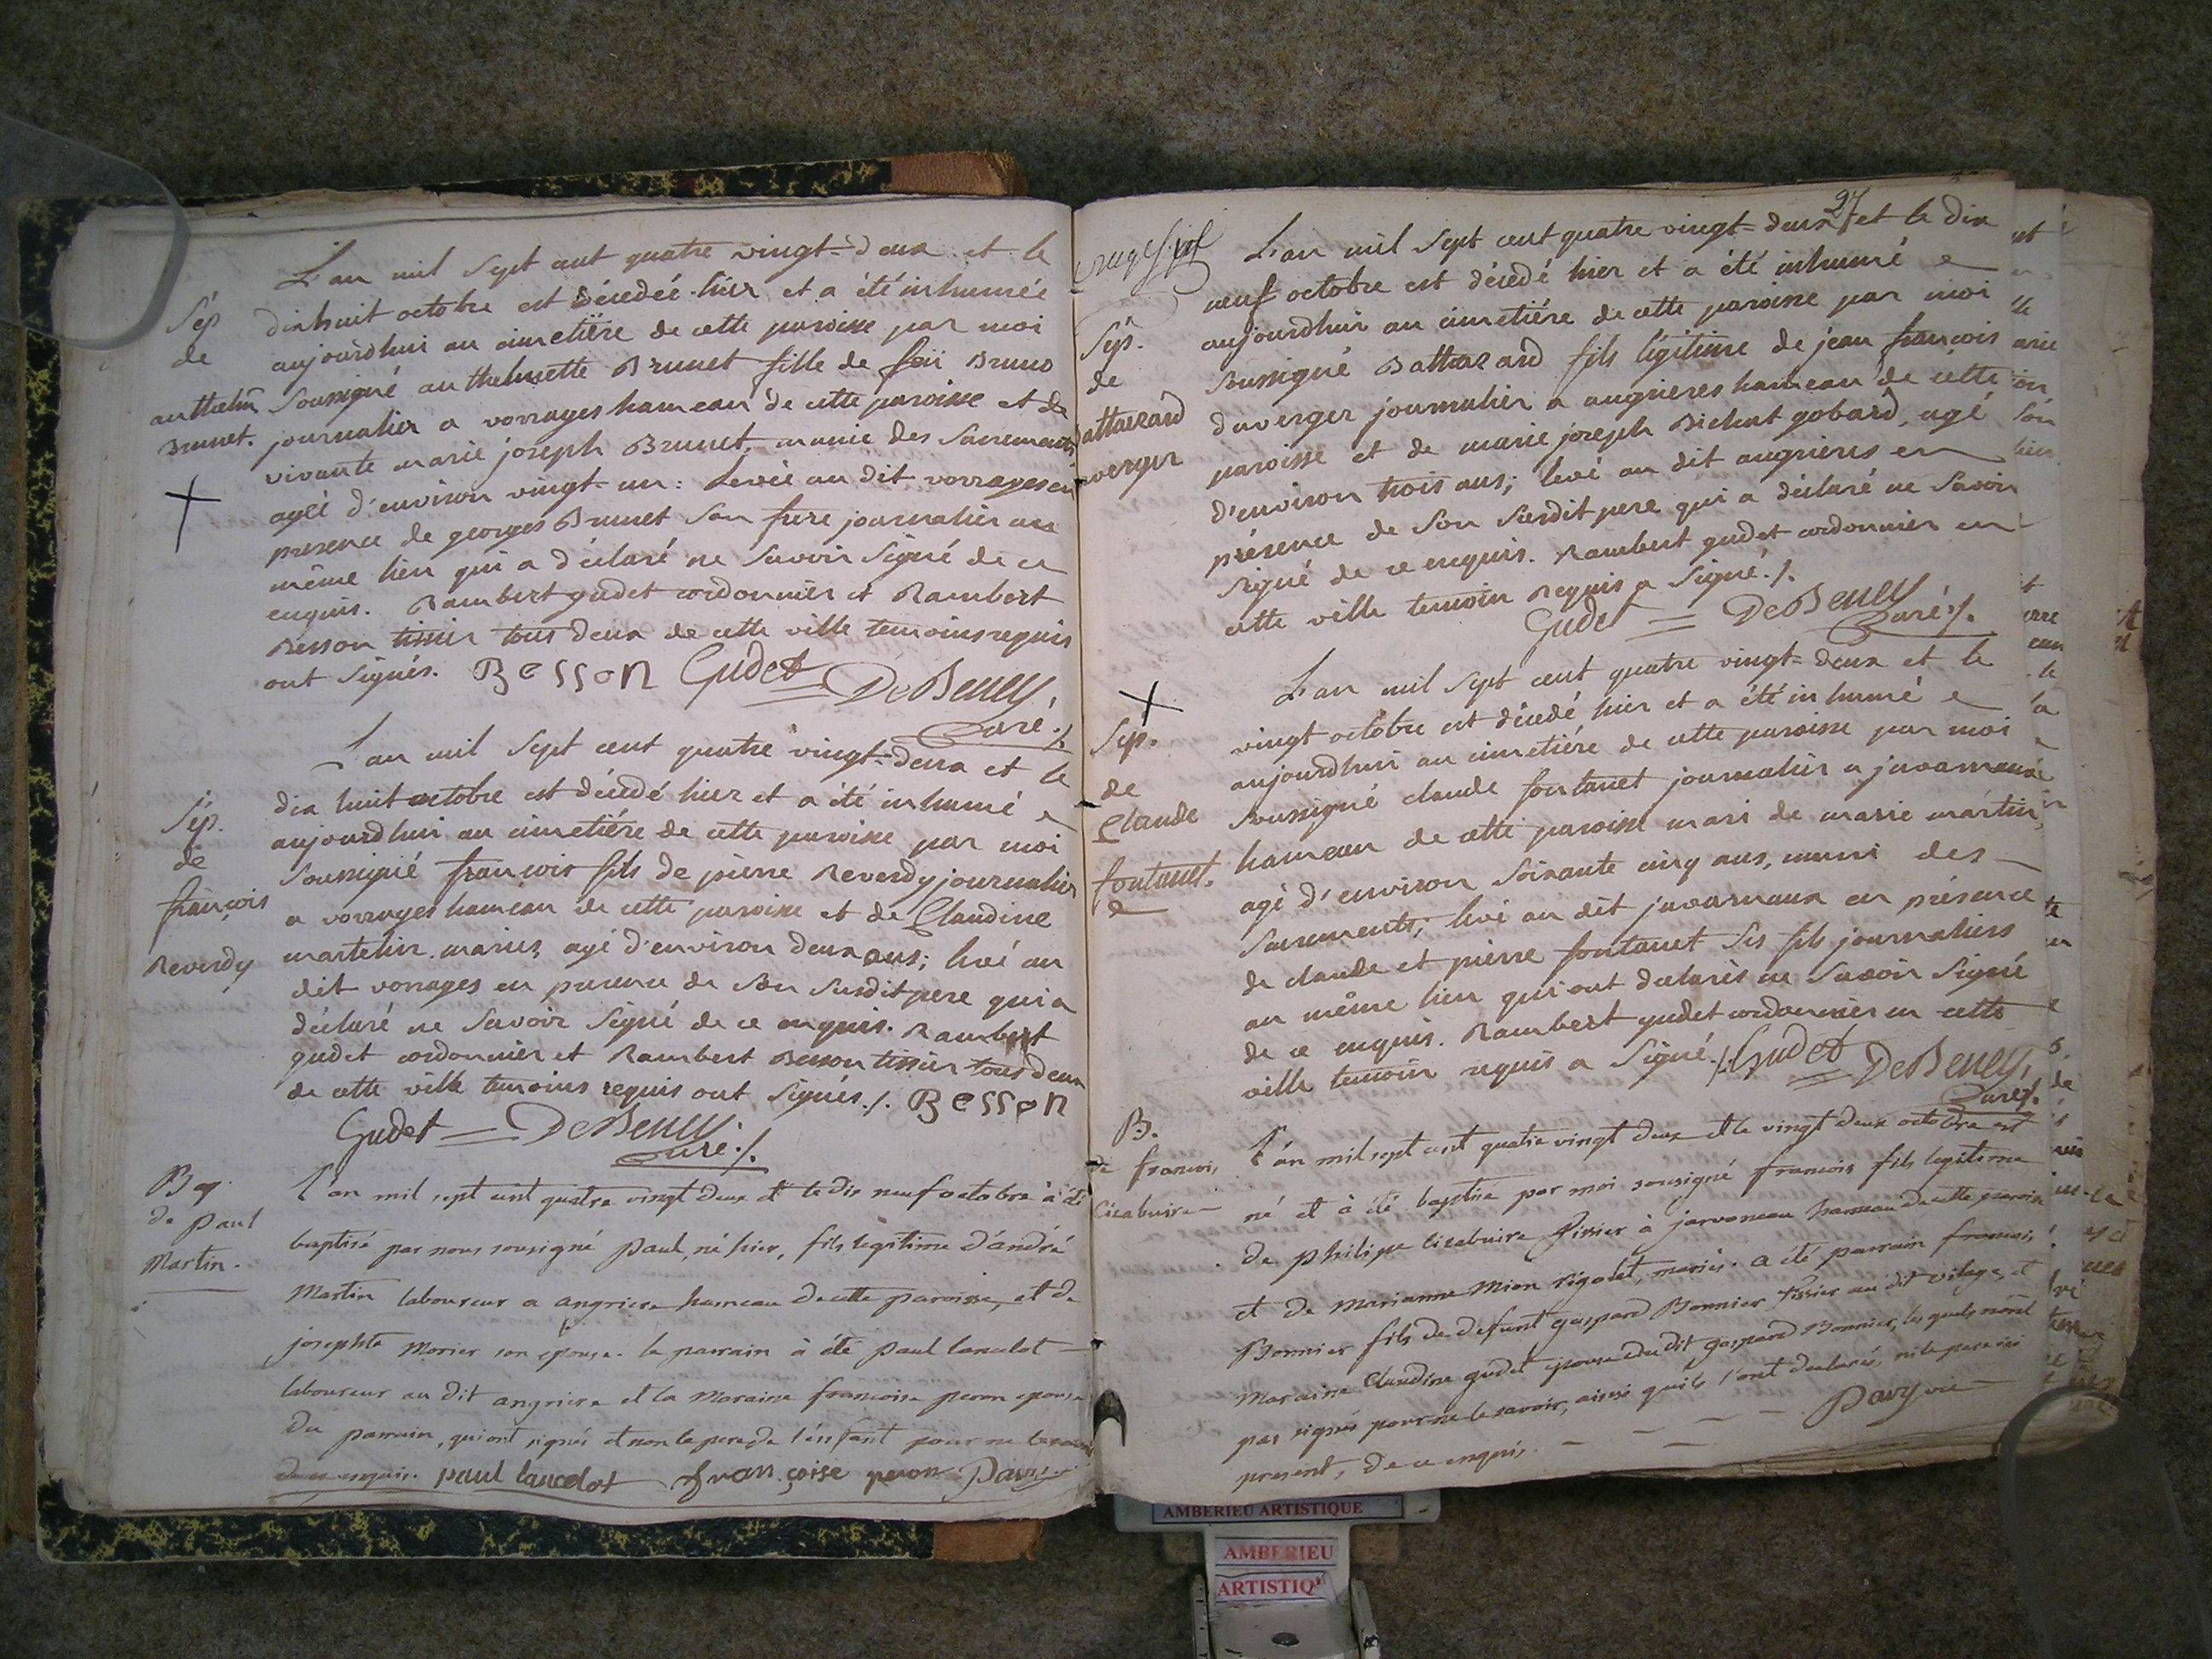 L'an mil Sept cent quatre vingt-deux et le
Sép
de
anthelm
Brunet.
dixhuit octobre est décedée hier et a été inhumée
aujourdhui au cimetiére de cette paroisse par moi
Soussigné anthelmette Brunet fille de feu Bruno
journalier a vorrages hameau de cette paroisse et de
vivante marie joseph Brunet, munie des Sacrements
agée d'environ vingt-un: Levée au dit vorrages en
presence de georges Brunet Son frere journalier au
même lieu qui a déclaré ne Savoir Signé de ce
enquis. Rambert gudet cordonnier et Rambert
Besson tissier tous deux de cette ville temoins requis
ont Signés. Besson Gudet DeBeney
Curé./.
L'an mil Sept cent quatre vingt-deux et le
Sép.
de
françois
Reverdy
dix huit octobre est décedé hier et a été inhumé
aujourdhui au cimetiére de cette paroisse par moi
Soussigné françois fils de pierre Reverdy journalier
a vorrages hameau de cette paroisse et de Claudine
martelin mariés, agé d'environ deux ans; levé au
dit vorrages en presence de Son Susdit pere qui a
déclaré ne Savoir Signé de ce enquis. Rambert
gudet cordonnier et Rambert Besson tissier tous deux
de cette ville temoins requis ont Signés./. Besson
Gudet DeBeney
Curé./.
Bap.
de paul
Martin.
L'an mil sept cent quatre vingt deux et le dix neuf octobre à été
baptisé par nous sousigné paul, né hier, fils legitime d'andré
Martin laboureur a angriere hameau de cette paroisse, et de
josephte Morier son epouse. le parrain à été paul lancelot
laboureur au dit angriere et la Maraine francoise peron epouse
du parrain, qui ont signés et non le pere de l'enfant pour ne le savoir
de ce enquis. paul lancelot françoise peron Davy
27
L'an mil Sept cent quatre vingt-deux et le dix
Sép.
de
attazard
verger
neuf octobre est décedé hier et a été inhumé
aujourdhui au cimetiére de cette paroisse par moi
Sussigné Balthazard fils légitime de jean françois
duverger journalier a angrieres hameau de cette
paroisse et de marie joseph Bichat gobard, agé
d'environ trois ans; levé au dit angrieres en
présence de Son Susdit pere qui a déclaré ne Savoir
Signé de ce enquis. Rambert gudet cordonnier en
cette ville temoin requis a Signé./.
Gudet DeBeney
Curé./.
L'an mil Sept cent quatre vingt-deux et le
Sép.
de
Claude
fontanet.
vingt octobre est décedé hier et a été inhumé
aujourdhui au cimetiére de cette paroisse par moi
Soussigné claude fontanet journalier a
hameau de cette paroisse mari de marie martin,
agé d'environ Soixante cinq ans, muni des
Sacrements; levé au dit javarnaux en présence
de claude et pierre fontanet Ses fils journaliers
au même lieu qui ont declarés ne Savoir Signé
de ce enquis. Rambert gudet cordonnier en cette
ville temoin requis a Signé./. Gudet DeBeney,
Curé./.
B.
de francois
L'an mil sept cent quatre vingt deux et le vingt deux octobre est
né et à été baptisé par moi sousigné francois fils legitime
de philipe tissier à jarvoneau hameau de cette paroisse
et de Marianne Mion rigolet, mariés. a été parrain francois
Bonnier fils de defunt gaspard Bonnier tissier au dit vilage, et
Maraine Claudine gudet epouse du dit gaspard Bonnier, les quels n'ont
pas signés pour ne le savoir, ainsi quils l'ont declarés, ni le pere ici
present, de ce enquis. Davy vic
AMBERIEU ARTISTIQUE
AMBERIEU
ARTISTIQ